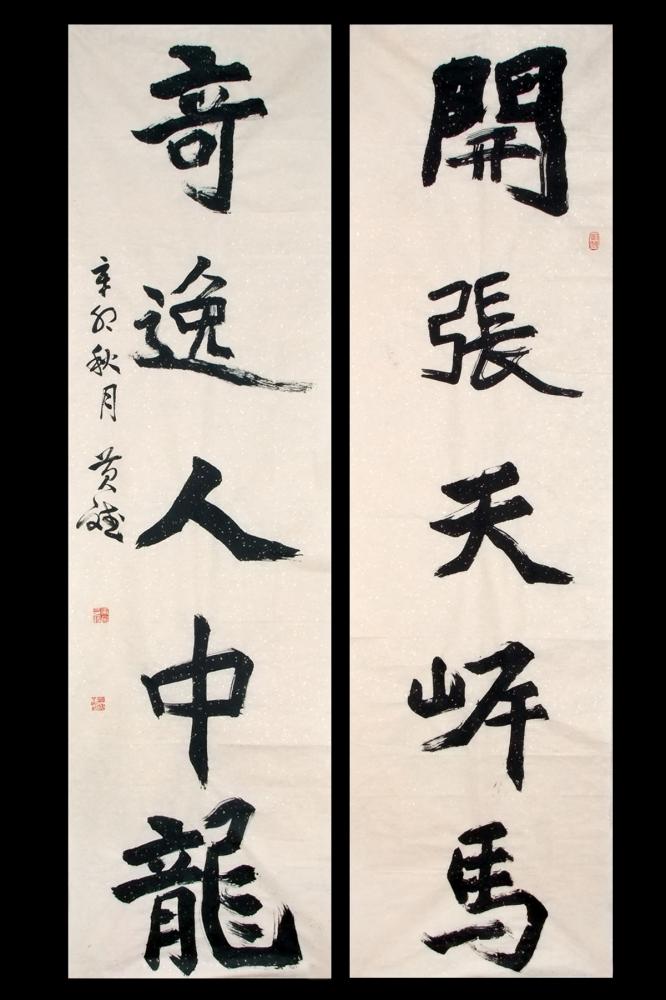 開張天岸馬
奇逸人中龍
辛卯秋月 黄斌